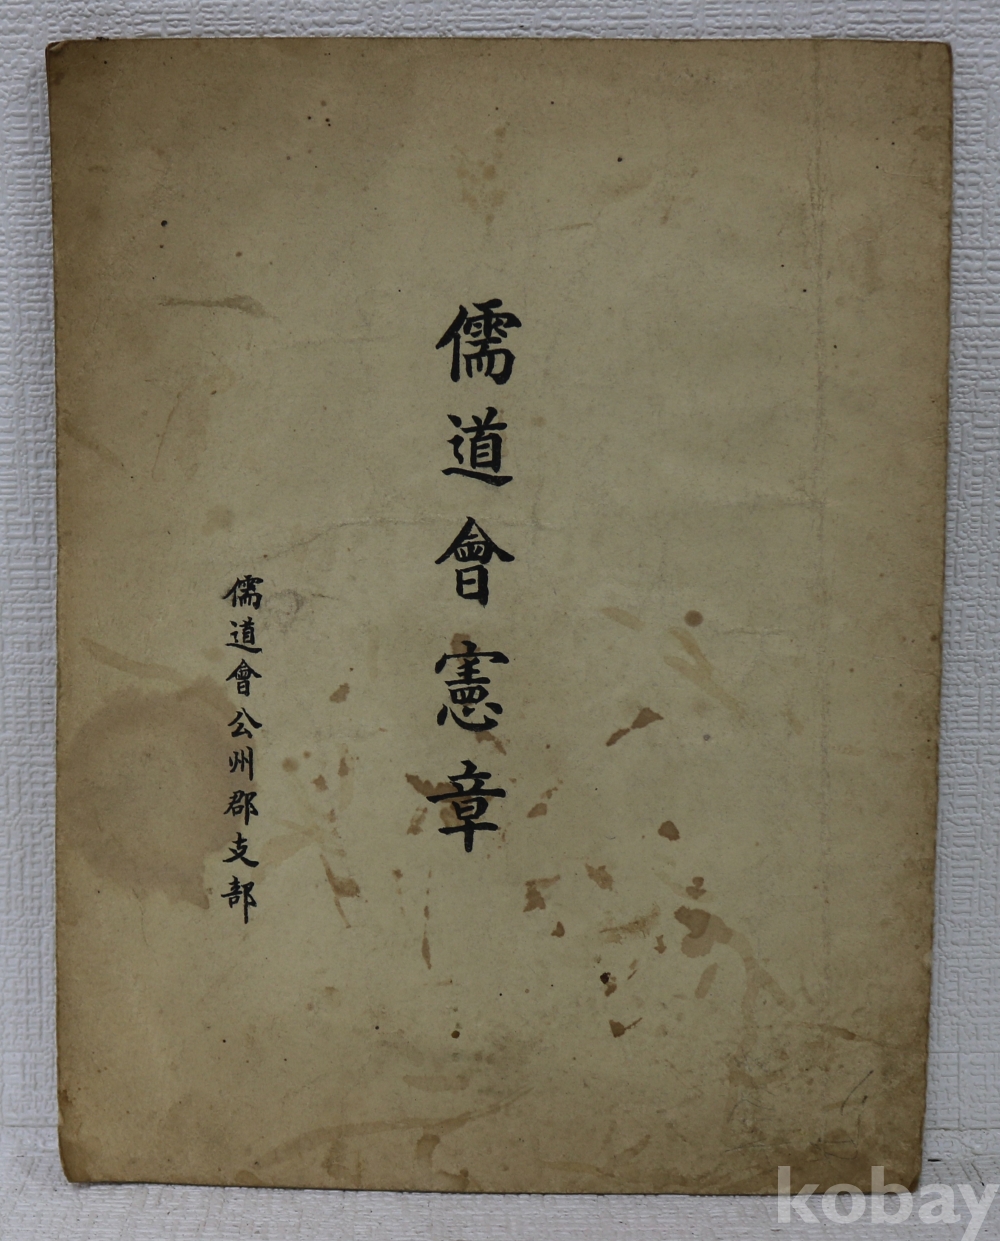 儒道會憲章
儒道會公州郡支部
kobay